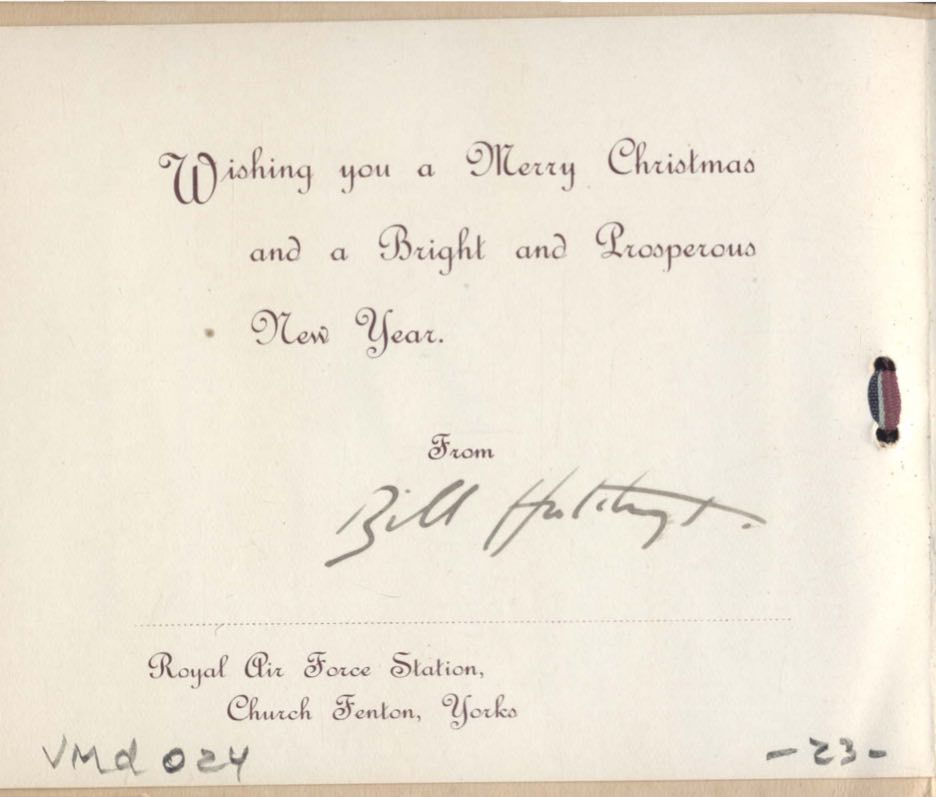 Wishing you a Merry Christmas
and a Bright and Prosperous
New Year.
From
Bill
Royal Air Force Station,
Church Fenton, Yorks
VMd 024
-23-